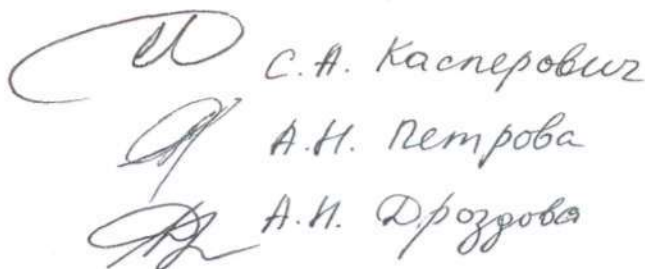 С.А. Касперович
А.Н. Петрова
А.И. Дроздова